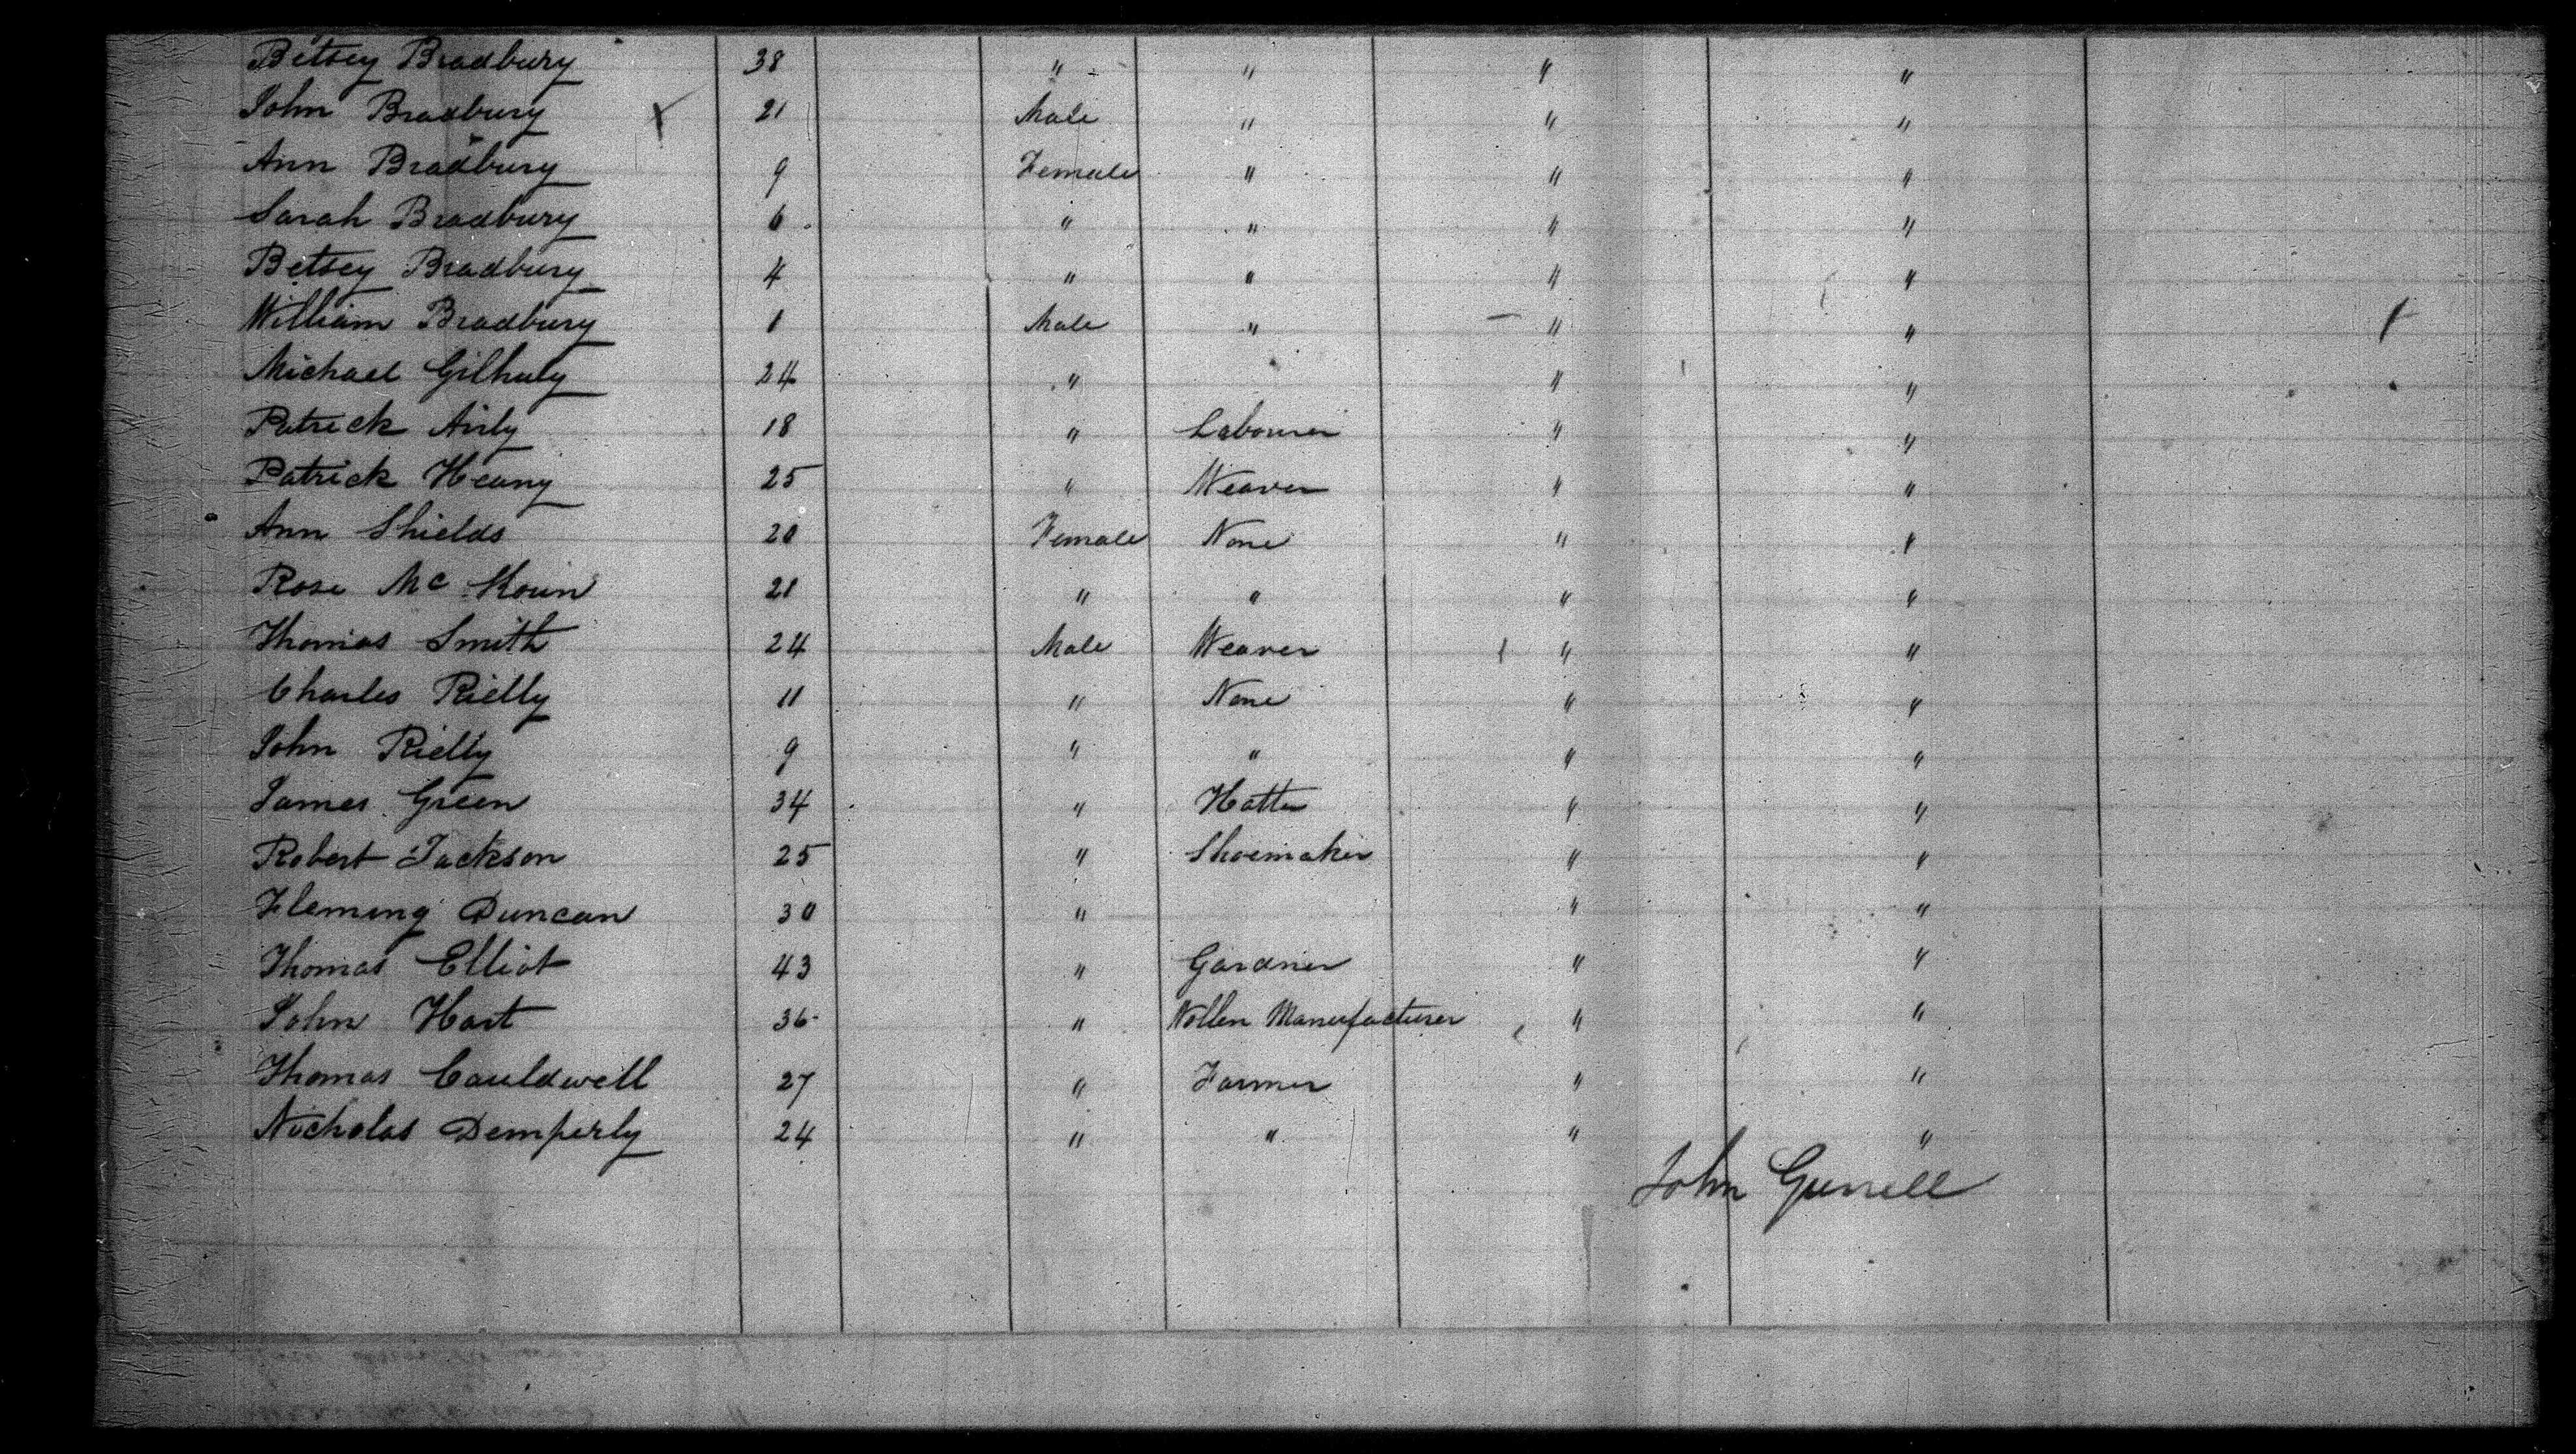 Betsey Bradbury 38 " " " "
John Bradbury 21 Male " " "
Ann Bradbury 9 Female " " "
Sarah Bradbury 6 " " " "
Betsey Bradbury 4 " " " "
William Bradbury 1 Male " " "
Michael Gilhuly 24 " " "
Patrick Airly 18 " Labourer " "
Patrick Heany 25 " Weaver " "
Ann Shields 20 Female None " "
Rose Mc Koun 21 " " " "
Thomas Smith 24 Male Weaver " "
Charles Rielly 11 " None " "
John Rielly 9 " " " "
James Green 34 " Hatter " "
Robert Jackson 25 " Shoemaker " "
Fleming Duncan 30 " " "
Thomas Elliot 43 " Gardner " "
John Hart 36 " Wollen Manufacturer " "
Thomas Cauldwell 27 " Farmer " "
Nicholas Demperly 24 " " " "
John